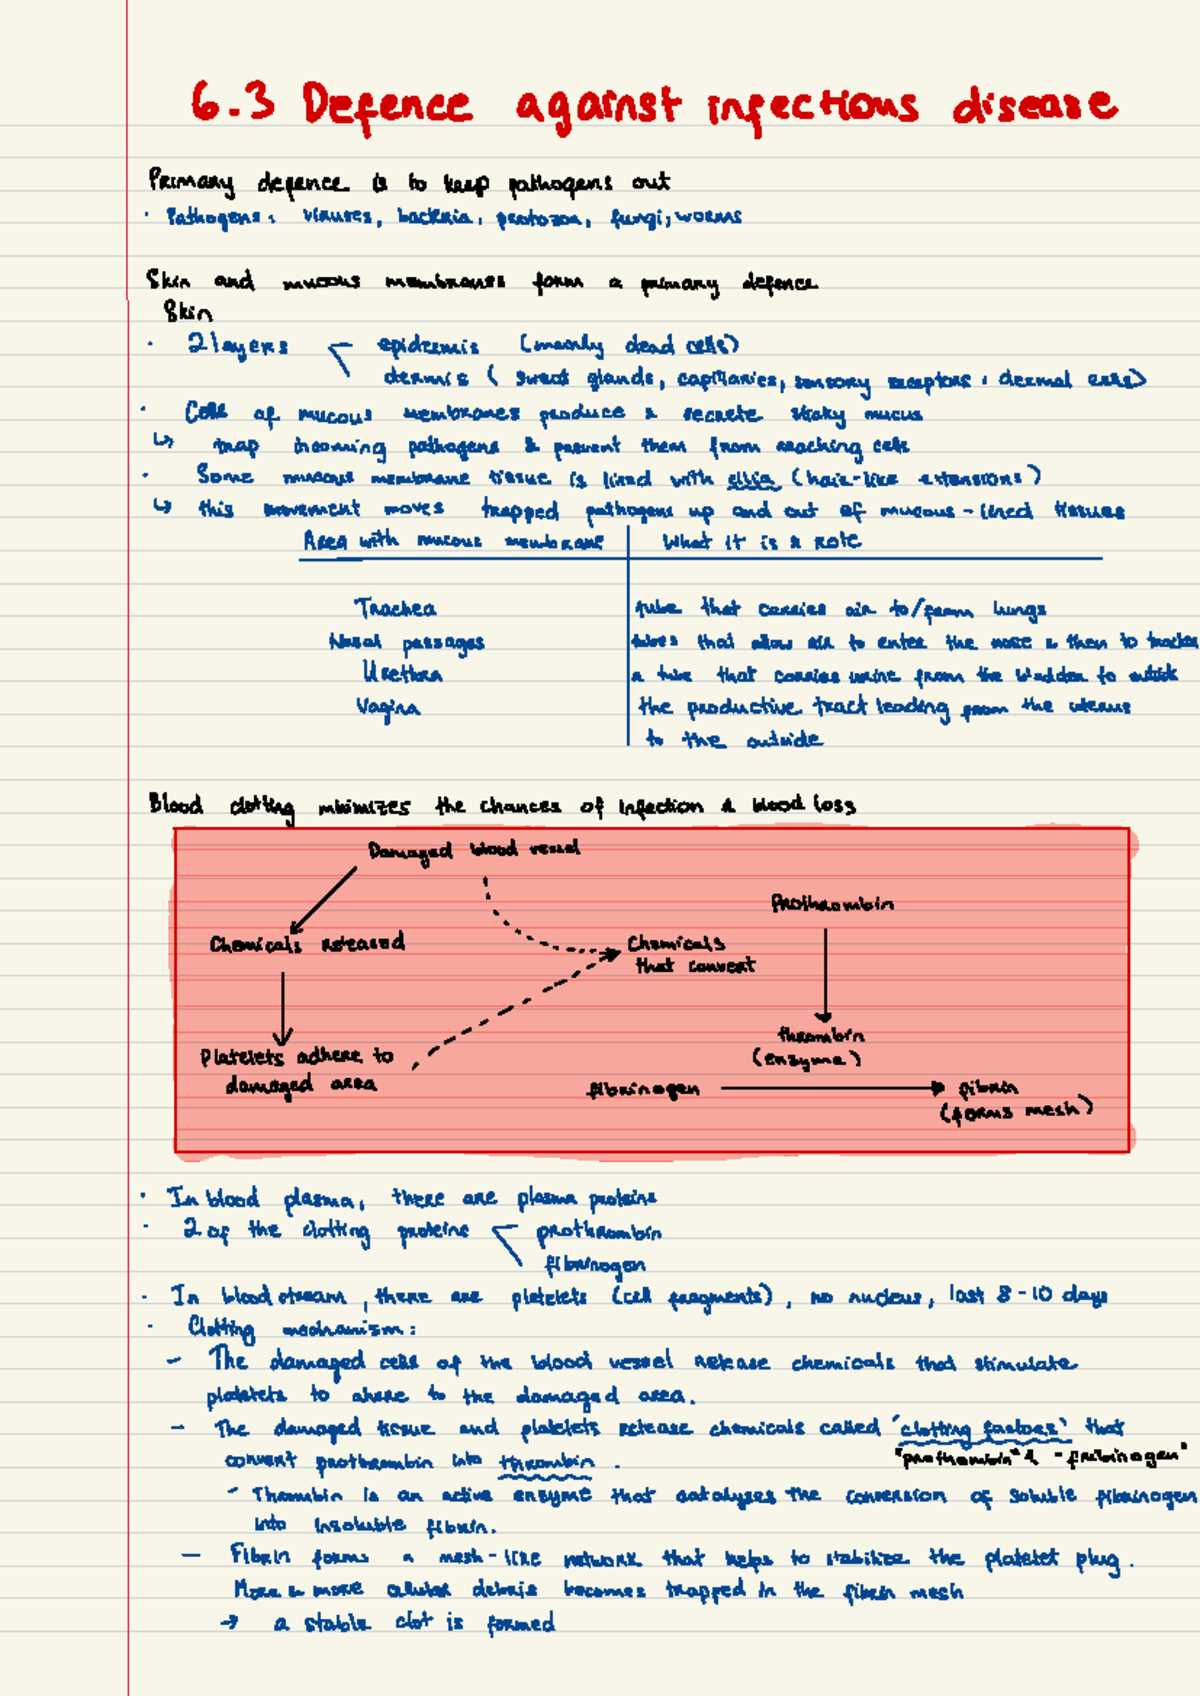 6.3 Defence against infectious disease
Primary defence is to keep pathogens out
· Pathogens: viruses, bacteria, protozoa, fungi, worms
Skin and mucous membranes form a primary defence
Skin
· 2 layers epidermis (mainly dead cells)
dermis (sweat glands, capillaries, sensory receptors, dermal cells)
· Cells of mucous membranes produce & secrete sticky mucus
↳ trap incoming pathogens & prevent them from reaching cells
· Some mucous membrane tissue is lined with cilia (hair-like extensions)
↳ this movement moves trapped pathogens up and out of mucous-lined tissues
Area with mucous membrane What it is & role
Trachea tube that carries air to/from lungs
Nasal passages tubes that allow air to enter the nose & then to trachea
Urethra a tube that carries urine from the bladder to outside
Vagina the productive tract leading from the uterus
to the outside
Blood clotting minimizes the chances of infection & blood loss
Damaged blood vessel
Prothrombin
Chemicals released Chemicals
that convert
thrombin
Platelets adhere to (enzyme)
damaged area fibrinogen → fibrin
(forms mesh)
· In blood plasma, there are plasma proteins
· 2 of the clotting proteins prothrombin
fibrinogen
· In blood stream, there are platelets (cell fragments), no nucleus, last 8-10 days
· Clotting mechanism:
- The damaged cells of the blood vessel release chemicals that stimulate
platelets to ahere to the damaged area.
- The damaged tissue and platelets release chemicals called 'clotting factors' that
convert prothrombin into thrombin. "prothombin" & -fribinogen"
- Thrombin is an active enzyme that catalyses the conversion of soluble fibrinogen
into insoluble fibrin.
- Fibrin forms a mesh-like network that helps to stabilize the platelet plug.
More & more cellular debris becomes trapped in the fibrin mesh
→ a stable clot is formed